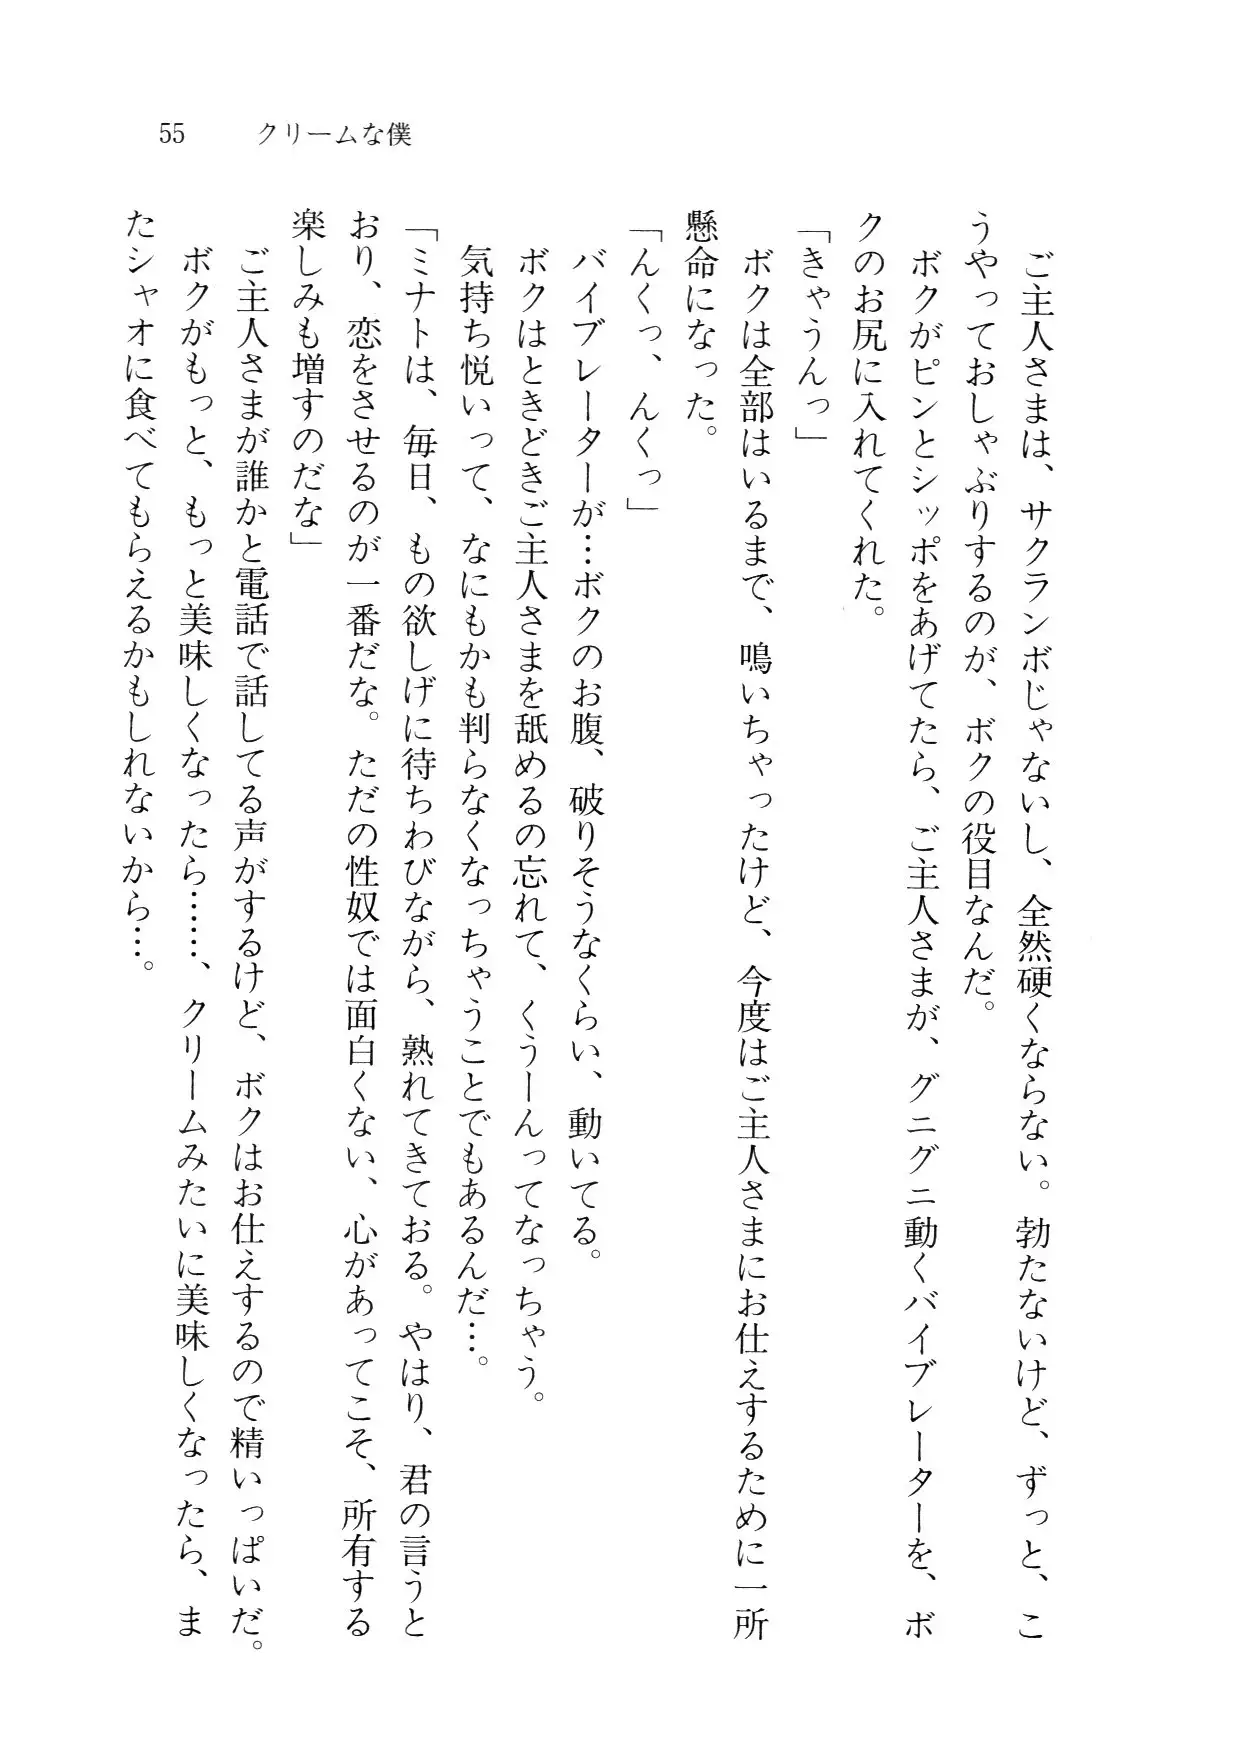 55 クリームな僕
　ご主人さまは、サクランボじゃないし、全然硬くならない。勃たないけど、ずっと、こ
うやっておしゃぶりするのが、ボクの役目なんだ。
　ボクがピンとシッポをあげてたら、ご主人さまが、グニグニ動くバイブレーターを、ボ
クのお尻に入れてくれた。
「きゃうんっ」
　ボクは全部はいるまで、鳴いちゃったけど、今度はご主人さまにお仕えするために一所
懸命になった。
「んくっ、んくっ」
　バイブレーターが…ボクのお腹、破りそうなくらい、動いてる。
　ボクはときどきご主人さまを舐めるの忘れて、くうーんってなっちゃう。
　気持ち悦いって、なにもかも判らなくなっちゃうことでもあるんだ…。
「ミナトは、毎日、もの欲しげに待ちわびながら、熟れてきておる。やはり、君の言うと
おり、恋をさせるのが一番だな。ただの性奴では面白くない、心があってこそ、所有する
楽しみも増すのだな」
　ご主人さまが誰かと電話で話してる声がするけど、ボクはお仕えするので精いっぱいだ。
　ボクがもっと、もっと美味しくなったら……、クリームみたいに美味しくなったら、ま
たシャオに食べてもらえるかもしれないから…。